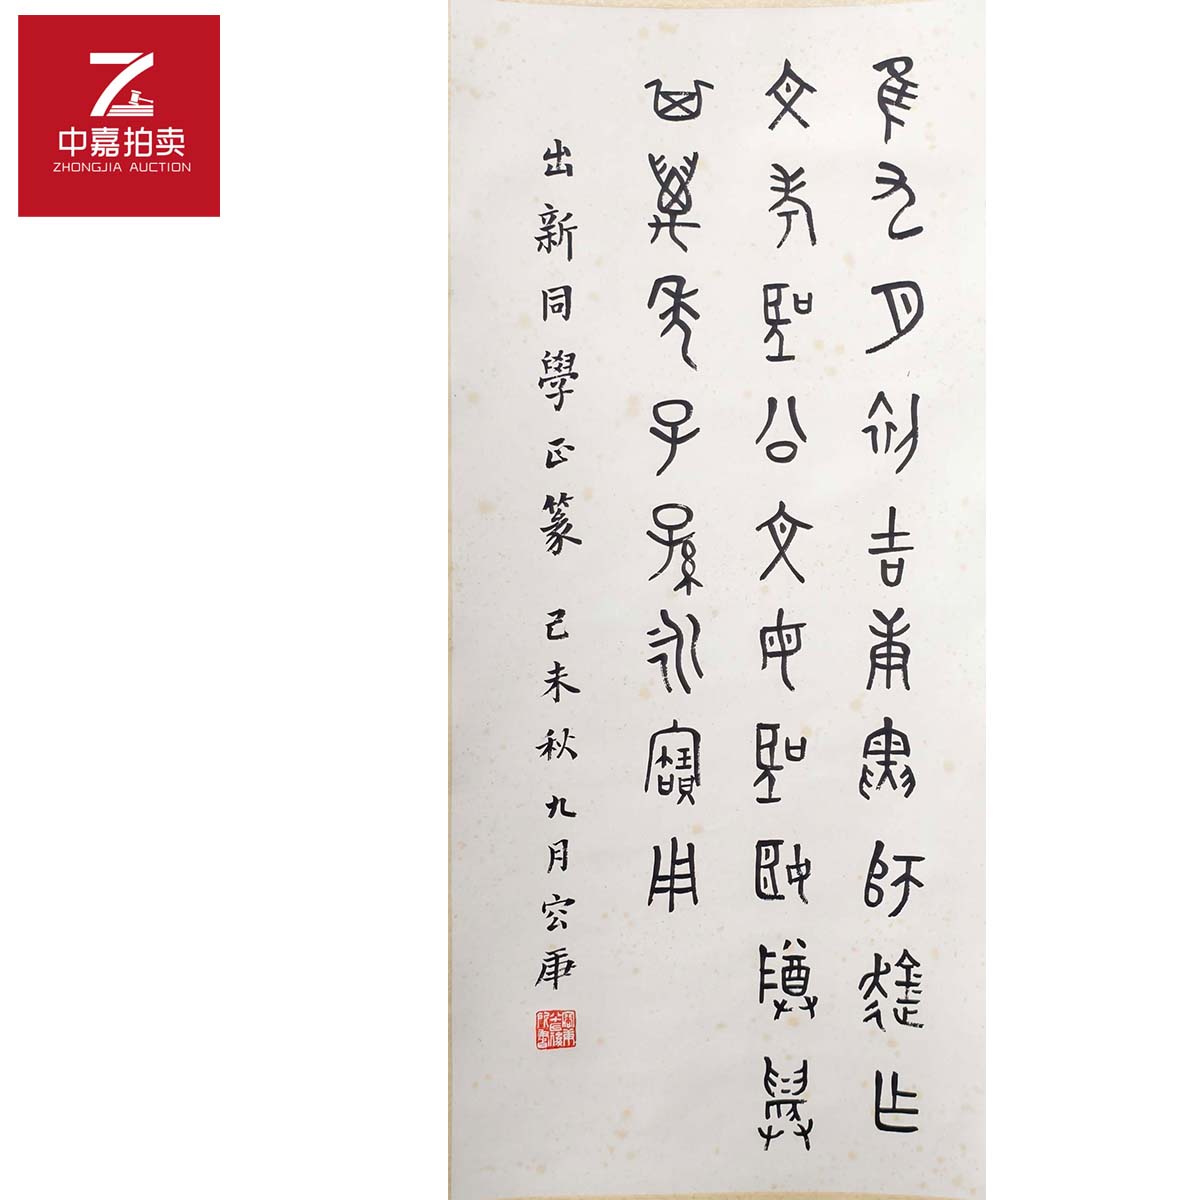 中嘉拍卖
ZHONGJIA AUCTION
隹九月初吉庚寅師趛乍
文考聖公文母聖姬尊
其萬年子孫永寶用
出新同學正篆 己未秋九月容庚